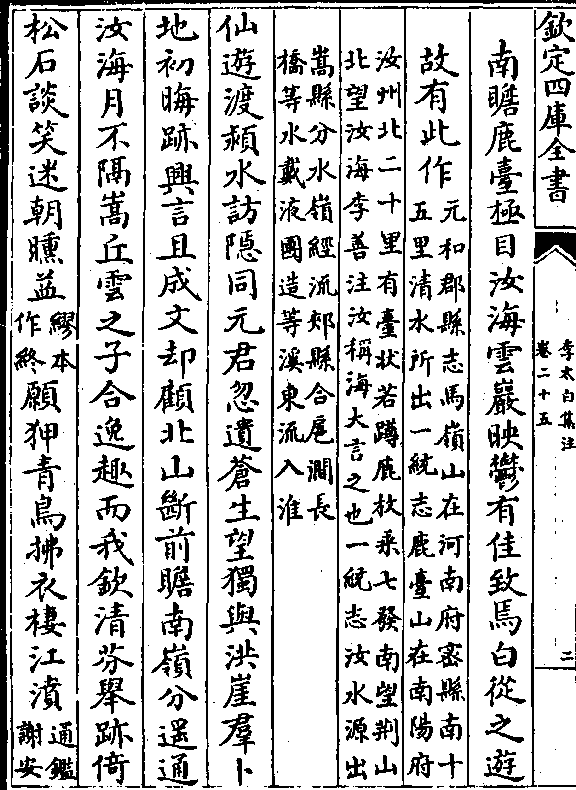 欽定四庫全書
李太白集注
卷二十五
二
南瞻鹿臺極目汝海雲巖映鬱有佳致焉白從之遊
故有此作
元和郡縣志馬嶺山在河南府密縣南十
五里清水所出一統志鹿臺山在南陽府
汝州北二十里有臺狀若蹲鹿枚乗七發南望荆山
北望汝海李善注汝稱海大言之也一統志汝水源出
嵩縣分水嶺經流郟縣合扈澗長
橋等水戴液國造等溪東流入淮
仙遊渡潁水訪隠同元君忽遺蒼生望獨與洪崖羣卜
地初晦跡興言且成文却顧北山斷前瞻南嶺分遥通
汝海月不隔嵩丘雲之子合逸趣而我欽清芬舉跡倚
松石談笑迷朝曛益
繆本
作終
願狎青鳥拂衣棲江濆
通鑑
謝安